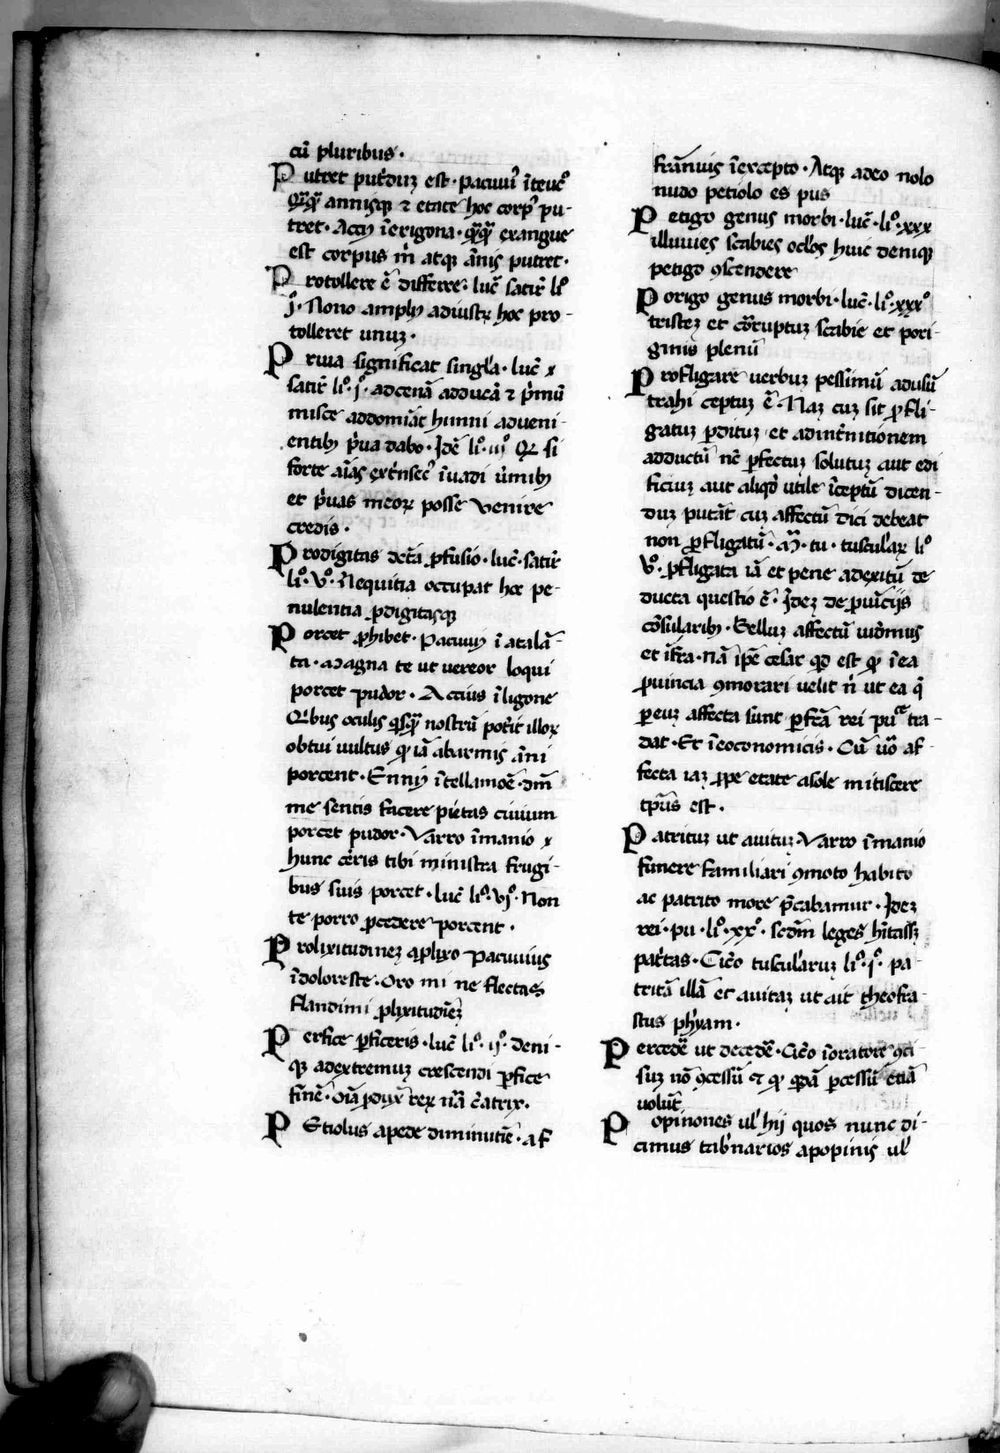 cū pluribus ·
Putret putrduȝ est · pacuuiꝰ ī teucº
Qꝫꝗ̄ annisqꝫ ⁊ etate hoc corpꝰ pu-
tret · Acciꝰ ī erigona · ꝗ̄ꝗ̄ exangue
est corpus m̄ atqꝫ ānis putret ·
Protollere ē differre · luc̄ satir̄ liº
iº · Nono amplꝰ adiustꝝ hoc pro-
tolleret unuȝ ·
Priua significat singl'a · luc̄ x
satir̄ liº · iº · ad cenā adducā ⁊ pⁱmū
misce abdomīāt hinni adueni-
entibꝫ pⁱua dabo · Idē liº · iiiº Qꝫ si
forte
et pⁱuas meoꝝ posse venire
credis ·
Prodigitas dc̄tā ꝓfusio · luc̄ · satir̄
liº · vº · Nequitia occupat hoc pe-
nulentia ꝓdigitasqꝫ
Porcet ꝓhibet · Pacuuiꝰ ī atalā-
ta · Magna te ut uereor loqui
porcet pudor · Accius ī ligone
Qⁱbus oculis nostrū potⁱt illoꝝ
obtui uultus ꝙ iā ab armis āni
porcent · Enniꝰ ī tellamōe · dm̄
me sentis facere pietas ciuium
porcet pudor · Varro ī manio x
hunc cēris tibi ministra frugi-
bus suis porcet · luc̄ liº · vjº · Non
te porro ꝓcedere porcent ·
Prolixitudineȝ a ꝓlixo Pacuuius
ī doloreste · Oro mi ne flectas
flandimi ꝓlixitudīeȝ
Perfice ꝑficeris · luc̄ liº · ijº · deni-
qꝫ ad extremuȝ crescendi ꝑfice
finē · oīa ꝑduxᵗ reꝝ nā c̄atrix ·
PEtiolus a pede diminutiē · af
franius ī excepto · Atqꝫ adeo nolo
nudo petiolo es pus
Petigo genus morbi · luc̄ · liº · xxx
illuuies scabies oc̄los huic deniqꝫ
petigo ꝯscendere
Porigo genus morbi · luc̄ · liº · xxxº
tristeȝ et cōruptuȝ scabie et pori-
ginis plenū
Profligare uerbuȝ pessimū ad usū
trahi ceptuȝ ē · Naȝ cuȝ sit ꝓfli-
gatuȝ ꝑdituȝ et ad int̄nitionem
adductū nc̄ ꝑfectuȝ solutuȝ aut edi
ficiuȝ aut aliqd̄ utile īceptū dicen-
duȝ putāt cuȝ affectū dici debeat
non ꝓfligatū · M̄ · tu · tuscul'aꝝ liº
vº · ꝓfligata iā et pene ad exitū de
ducta questio ē · Ideȝ de ꝓuīcijs
cōsularibꝫ · Belluȝ affectū uidēmus
et īfra · nā ip̄e cesar qd̄ est ꝙ ī ea
ꝓuincia ꝯmorari uelit nⁱ ut ea q̄
ꝑ euȝ affecta sunt ꝑfcā rei pu.ᶜᵉ tra-
dat · Et ī econonicis · Cū uº af-
fecta iaȝ ꝓpe etate a sole mitiscere
tp̄us est ·
Patrituȝ ut auituȝ · Varro ī manio
funere familiari ꝯmoto habito
ac patrito more p̄cabamur · Ideȝ
rei · pu · liº · xxº · scdm̄ leges h̄itassȝ
patⁱtas · Cicō tuscul'aruȝ liº · iº · pa-
tritā illā et auitaȝ ut ait theofra-
stus ph'yam ·
Percedē ut decedē · Cicō ī oratore ꝯci
suȝ nō ꝯcessū ⁊ ꝙ qdā ꝑcessū etiā
uolūt
Popinones ul' hij quos nunc di-
cimus tab'narios a popinis ul'